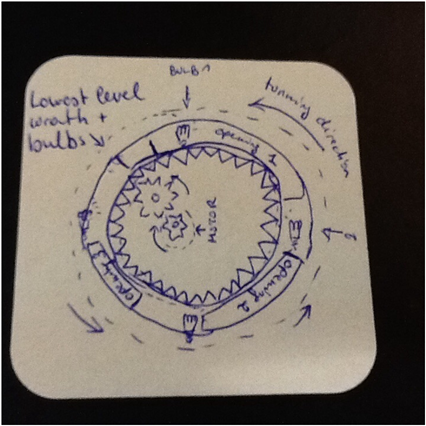 BULB 1
Lowest level
wreath +
bulbs
turning direction
opening 1
MOTOR
opening 2
opening 3